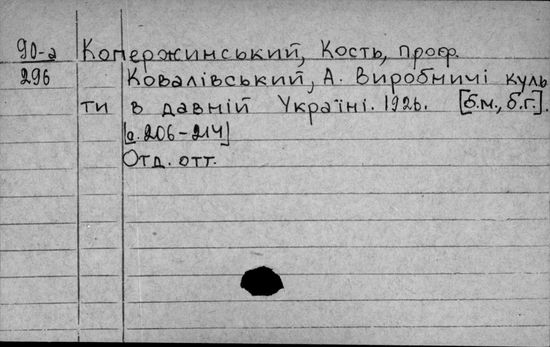 90-а Копержинський, Кость, проф.
296 Ковалівський, А. Виробничі куль
ти в давній Україні. 1926. [б.м., б.г.].
[с. 206-214]
Отд. отт.